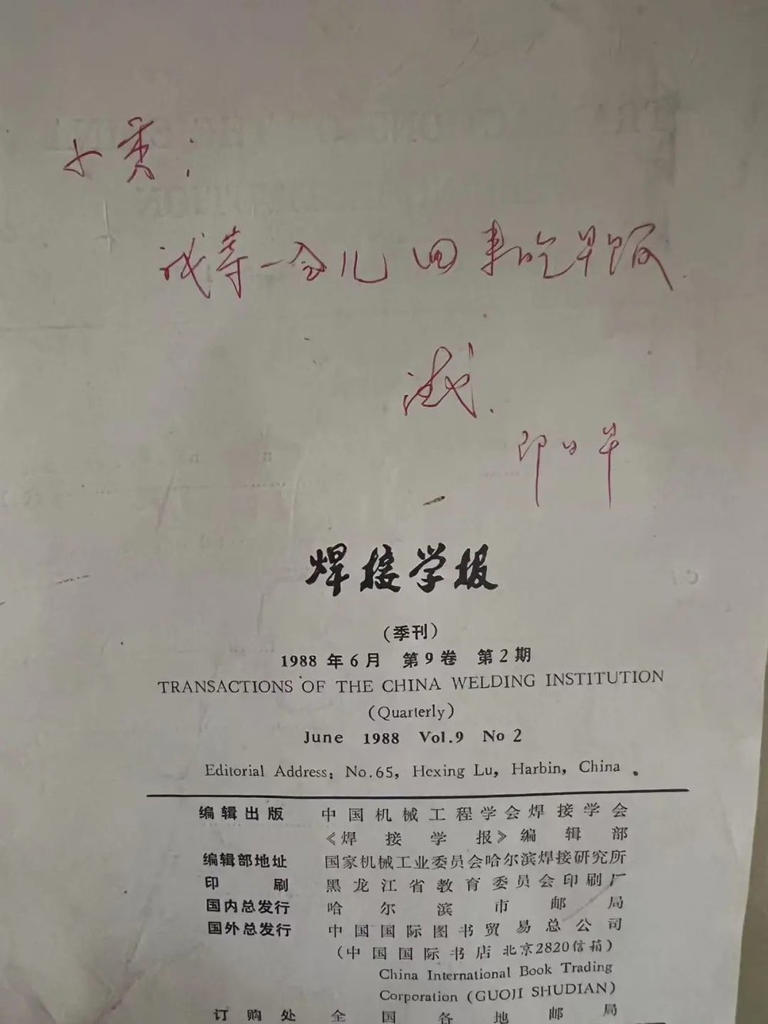 小黄：
我等一会儿回来吃早饭
即日早
焊接学报
（季刊）
1988 年 6 月 第 9 卷 第 2 期
TRANSACTIONS OF THE CHINA WELDING INSTITUTION
(Quarterly)
June 1988 Vol.9 No 2
Editorial Address: No.65, Hexing Lu, Harbin, China.
编辑出版 中国机械工程学会焊接学会
《焊接学报》编辑部
编辑部地址 国家机械工业委员会哈尔滨焊接研究所
印刷 黑龙江省教育委员会印刷厂
国内总发行 哈尔滨市邮局
国外总发行 中国国际图书贸易总公司
（中国国际书店 北京2820信箱）
China International Book Trading
Corporation (GUOJI SHUDIAN)
订购处 全国各地邮局